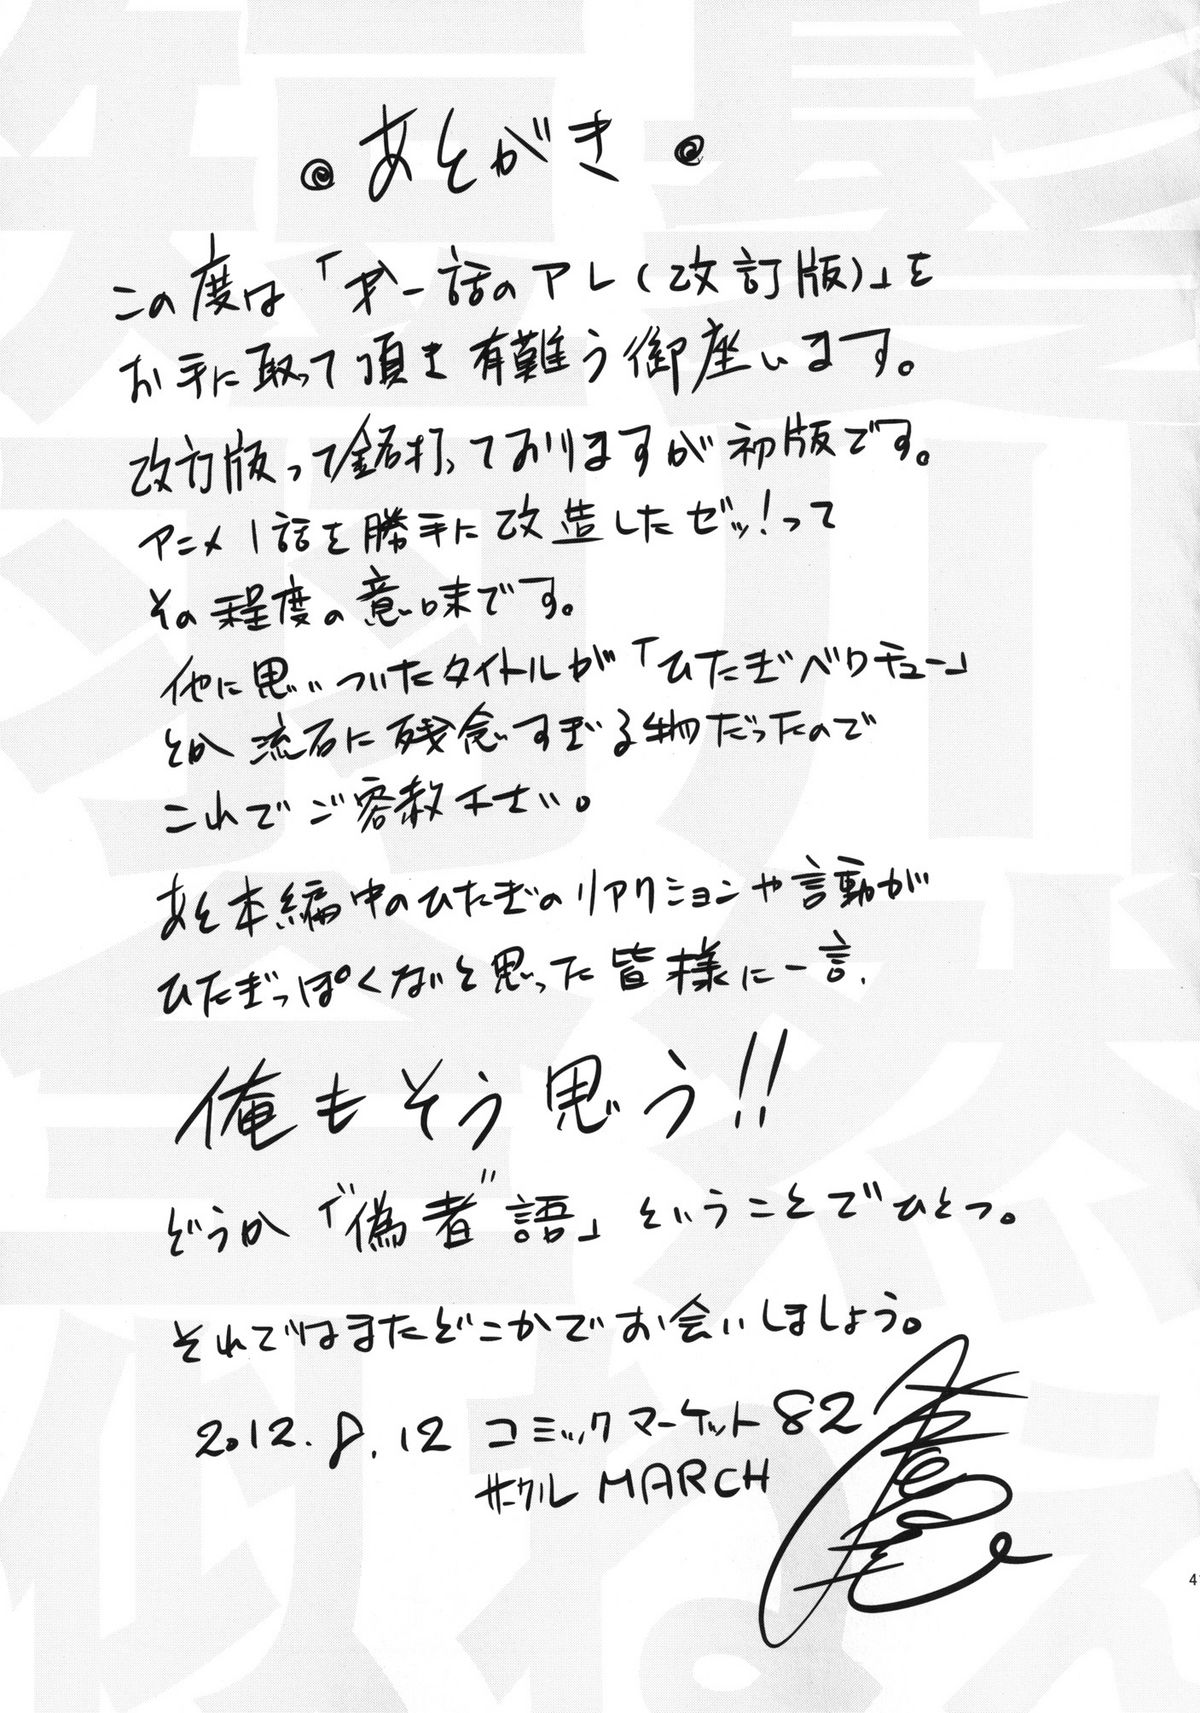 あとがき
この度は「才一話のアレ(改訂版)」を
お手に取って頂き有難う御座います。
改訂版って銘打っておりますが初版です。
アニメ1話を勝手に改造したゼッ!って
その程度の意味です。
他に思いついたタイトルが「ひたぎベクチュー」
とか流石に残念すぎる物だったので
これでご容赦下さい。
あと本編中のひたぎのリアクションや言動が
ひたぎっぽくないと思った皆様に一言、
俺もそう思う!!
どうか「"偽者"語」ということでひとつ。
それではまたどこかでお会いしましょう。
2012.8.12 コミックマーケット82
サークル MARCH